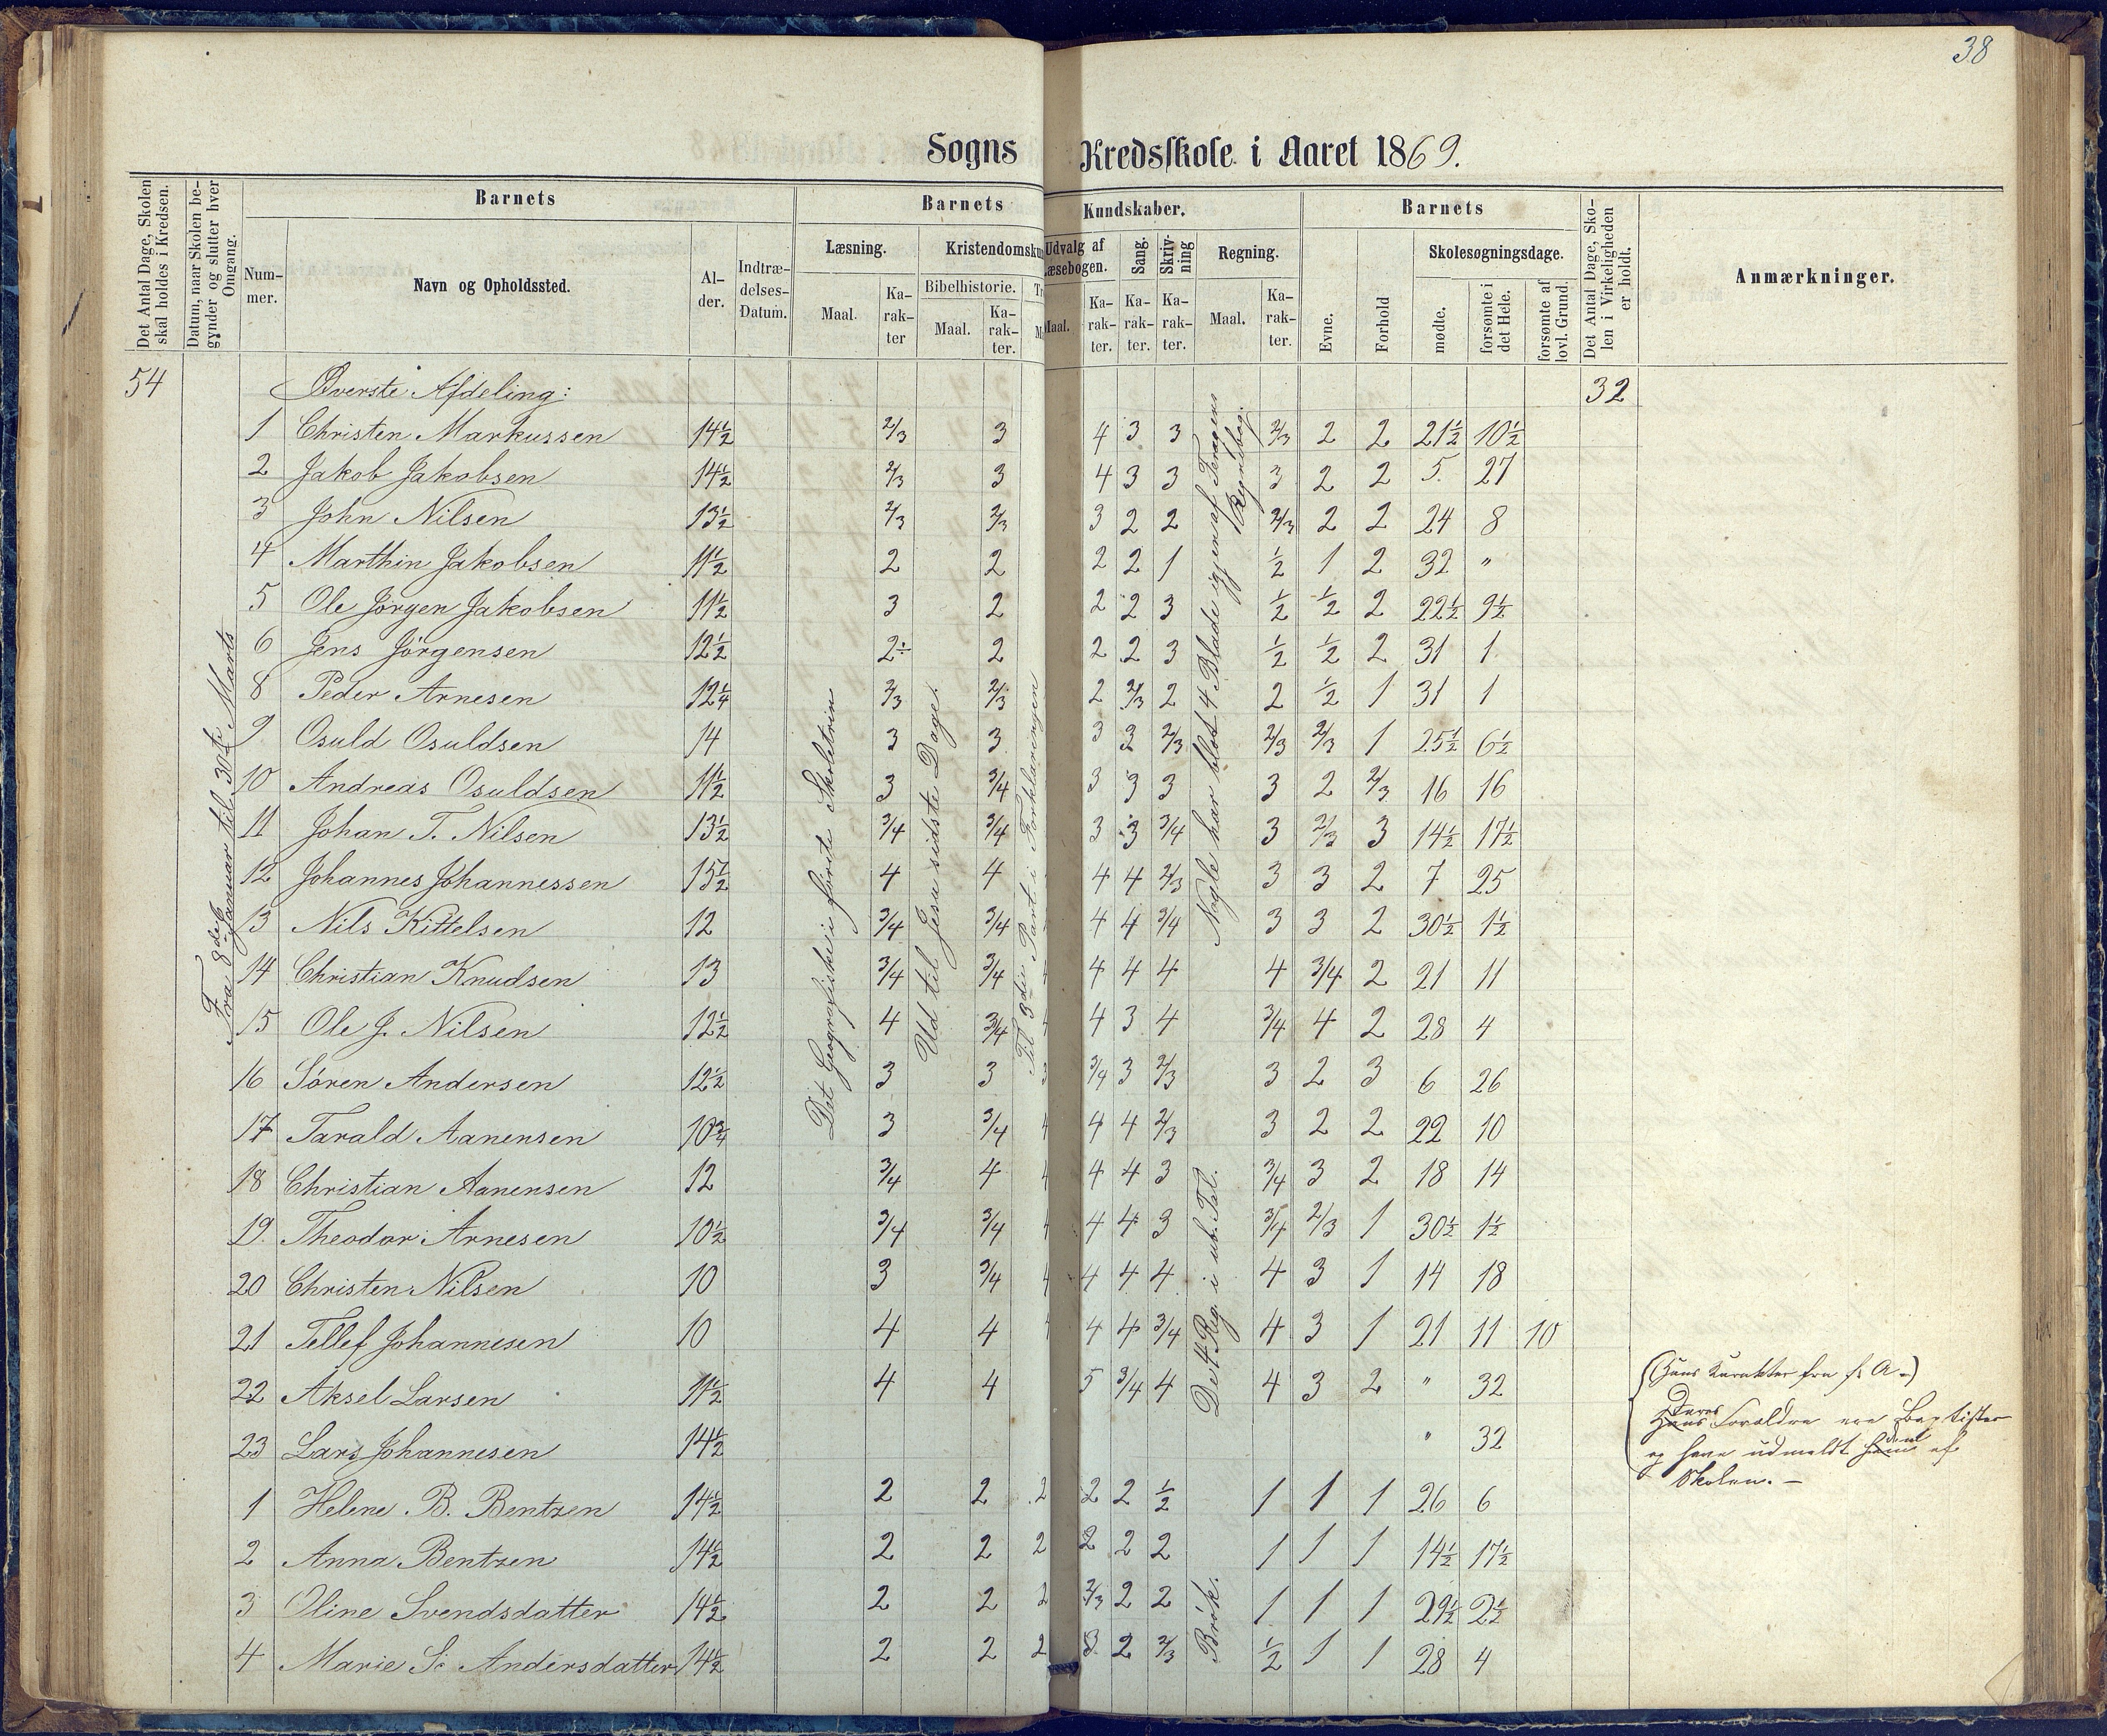 38
Sogns Kredsskole i Aaret 1869.
Det Antal Dage, Skolen skal holdes i Kredsen.
Datum, naar Skolen begynder og slutter hver Omgang.
Barnets
Num-mer.
Navn og Opholdssted.
Al-der.
Indtræ-delses-Datum.
Barnets Kundskaber.
Læsning.
Maal.
Ka-rak-ter
Kristendomskun
Bibelhistorie.
Maal.
Ka-rak-ter.
Udvalg af Læsebogen.
Maal.
Ka-rak-ter.
Sang.
Ka-rak-ter.
Skriv-ning
Ka-rak-ter.
Regning.
Maal.
Ka-rak-ter.
Barnets
Evne.
Forhold
Skolesøgningsdage.
mødte.
forsømte i det Hele.
forsømte af lovl. Grund.
Det Antal Dage, Sko-len i Virkeligheden er holdt.
Anmærkninger.
54 Øverste Afdeling: 32
1 Christen Markussen 14½ 2/3 3 4 3 3 2/3 2 2 21½ 10½
2 Jakob Jakobsen 14½ 2/3 3 4 3 3 3 2 2 5. 27
3 John Nilsen 13½ 2/3 2/3 3 2 2 2/3 2 2 24 8
4 Marthin Jakobsen 11½ 2 2 2 2 1 ½ 1 2 32 "
5 Ole Jørgen Jakobsen 11½ 3 2 2 2 3 ½ ½ 2 22½ 9½
6 Jens Jörgensen 12½ 2÷ 2 2 2 3 ½ ½ 2 31 1
8 Peder Arnesen 12¼ 2/3 2/3 2 2/3 2 2 ½ 1 31 1
9 Osuld Osuldsen 14 3 3 3 3 2/3 2/3 2/3 1 25½ 6½
10 Andreas Osuldsen 11½ 3 3/4 3 3 3 3 2 2/3 16 16
11 Johan T. Nilsen 13½ 3/4 3/4 3 3 3/4 3 2/3 3 14½ 17½
12 Johannes Johannessen 15½ 4 4 4 4 2/3 3 3 2 7 25
13 Nils Kittelsen 12 3/4 3/4 4 4 3/4 3 3 2 30½ 1½
14 Christian Knudsen 13 3/4 3/4 4 4 4 4 3/4 2 21 11
15 Ole J. Nilsen 12½ 4 3/4 4 3 4 3/4 4 2 28 4
16 Sören Andersen 12½ 3 3 3/4 3 2/3 3 2 3 6 26
17 Tarald Aanensen 10¾ 3 3/4 4 4 2/3 3 2 2 22 10
18 Christian Aanensen 12 3/4 4 4 4 3 3/4 3 2 18 14
19. Theodor Arnesen 10½ 3/4 3/4 4 4 3 3/4 2/3 1 30½ 1½
20 Christen Nilsen 10 3 3/4 4 4 4 4 3 1 14 18
21 Tellef Johannesen 10 4 4 4 4 3/4 4 3 1 21 11 10
22 Aksel Larsen 11½ 4 4 5 3/4 4 4 3 2 " 32
23 Lars Johannesen 14½ " 32
1 Helene B. Bentzen 14½ 2 2 2 2 2 ½ 1 1 1 26 6
2 Anna Bentzen 14½ 2 2 2 2 2 2 1 1 1 14½ 17½
3 Oline Svendsdatter 14½ 2 2 2 2/3 2 2 1 1 1 29½ 2½
4 Marie S. Andersdatter 14½ 2 2 2 3 2 2/3 ½ 1 1 28 4
Fra 8de Januar til 30te Marts
Det Geografiske i förste Skoletrin
Ud til Jesu sidste Dage.
Til 3die Part i Forklaringen
Nogle har blot 4 Blade igjen af Regnebog.
De 4 Reg. i ub. Tal.
Brök.
(Hans Karakter fra f. A.)
Deres Forældre ere Baptister
og have udmeldt dem af
Skolen. –